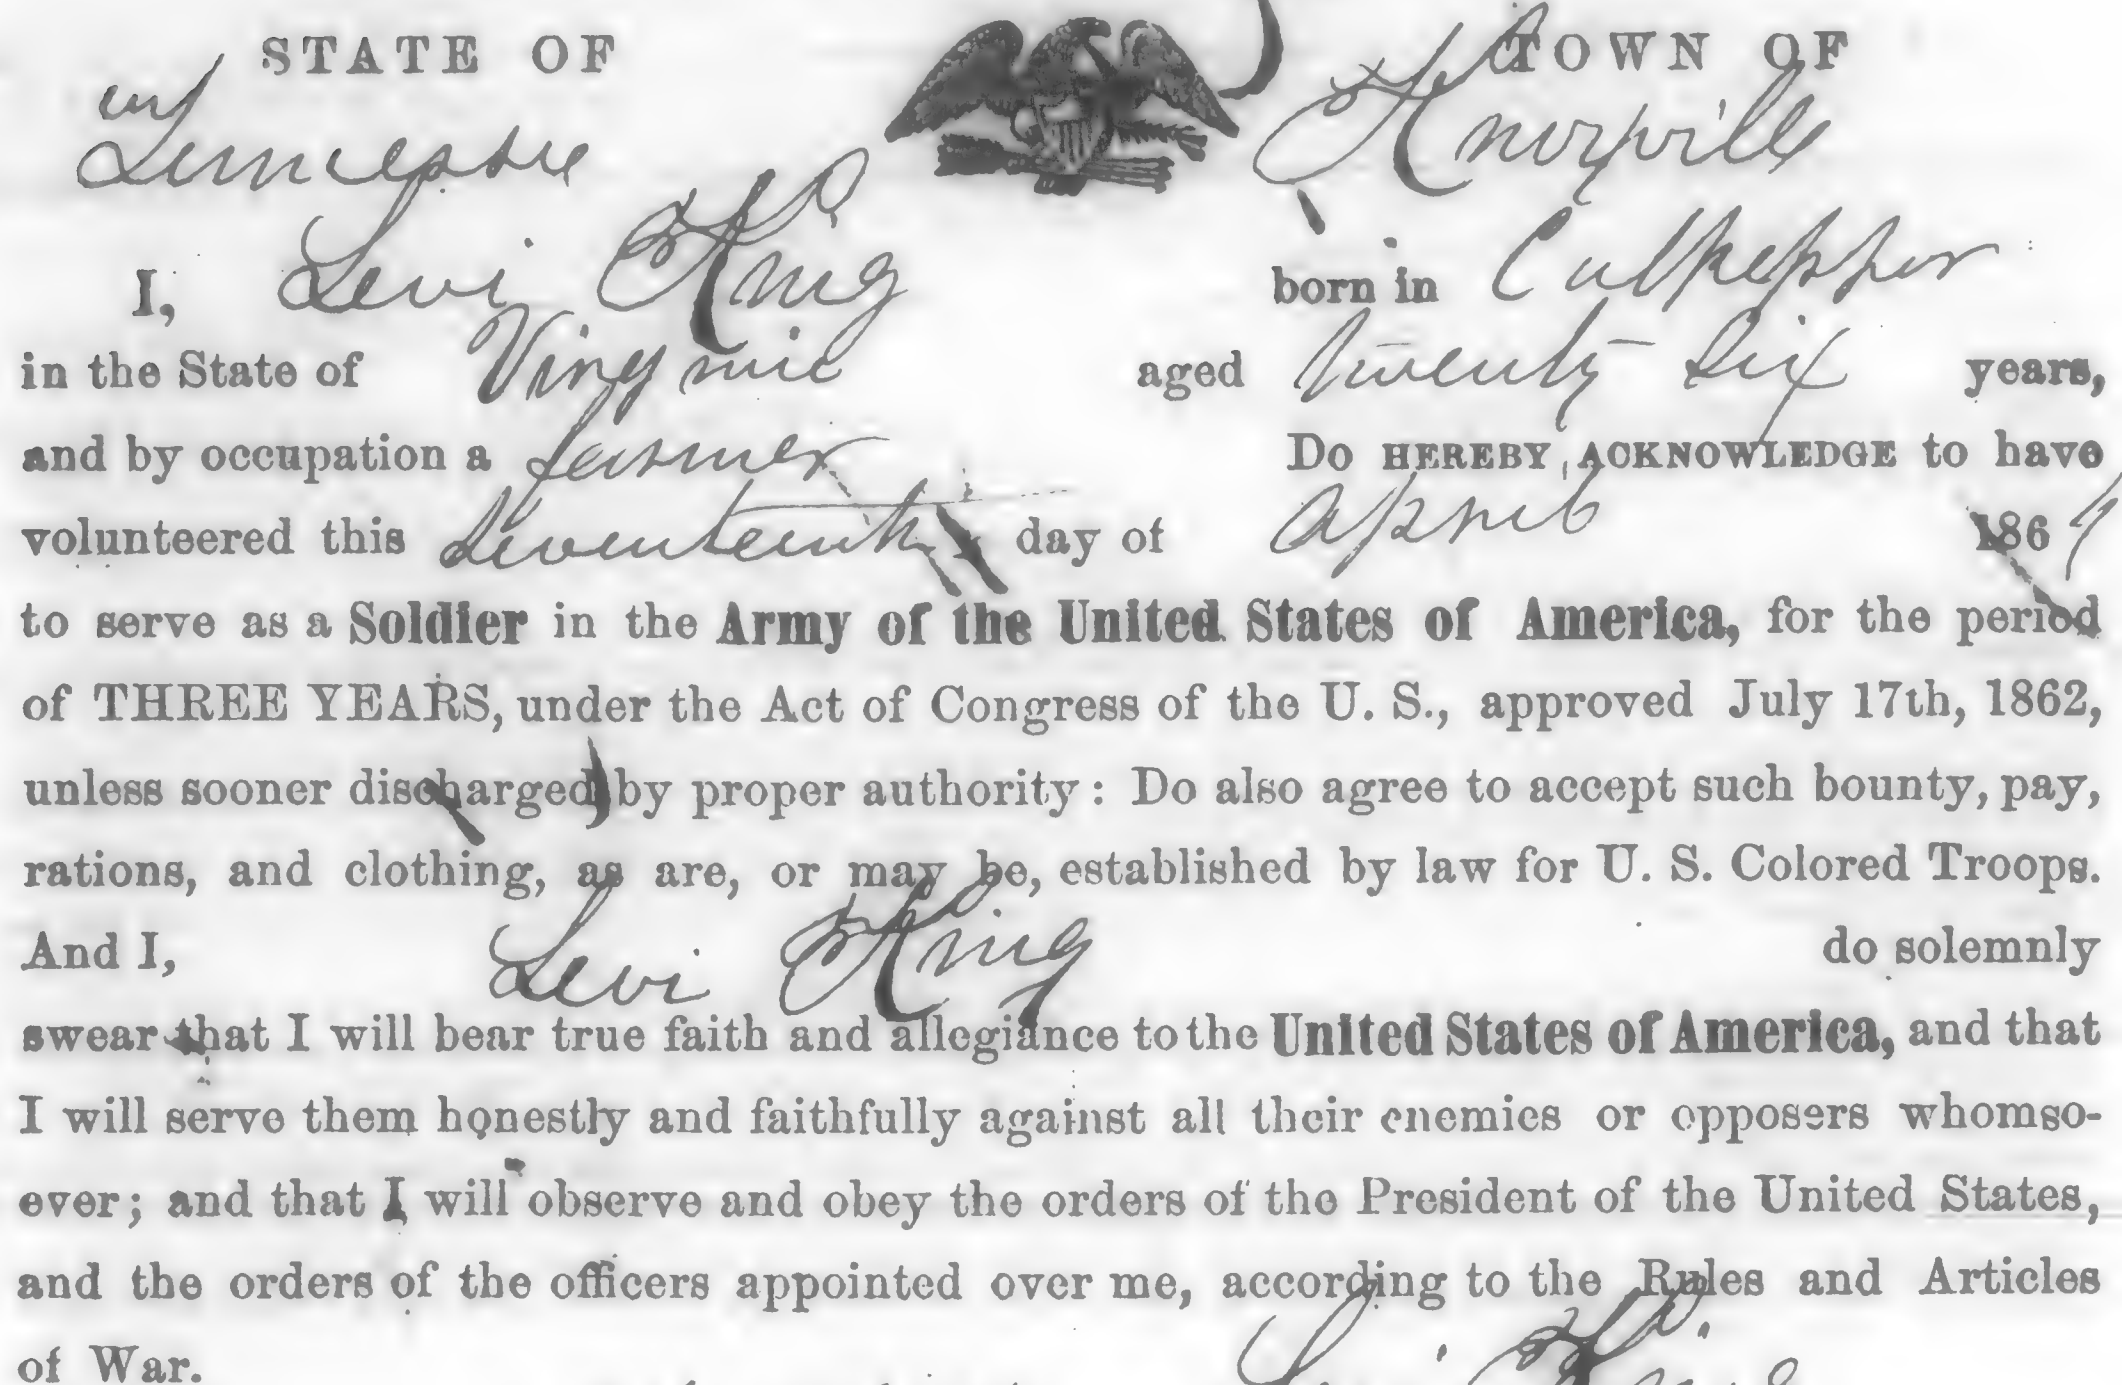 STATE OF TOWN OF
Tennessee Knoxville
I, Levi King born in Culpepper
in the State of Virginia aged twenty six years,
and by occupation a farmer Do HEREBY ACKNOWLEDGE to have
volunteered this Seventeenth day of April 186
to serve as a Soldier in the Army of the United States of America, for the period
of THREE YEARS, under the Act of Congress of the U. S., approved July 17th, 1862,
unless sooner discharged by proper authority: Do also agree to accept such bounty, pay,
rations, and clothing, as are, or may be, established by law for U. S. Colored Troops.
And I, Levi King do solemnly
swear that I will bear true faith and allegiance to the United States of America, and that
I will serve them honestly and faithfully against all their enemies or opposers whomso-
ever; and that I will observe and obey the orders of the President of the United States,
and the orders of the officers appointed over me, according to the Rules and Articles
of War.
Levi King